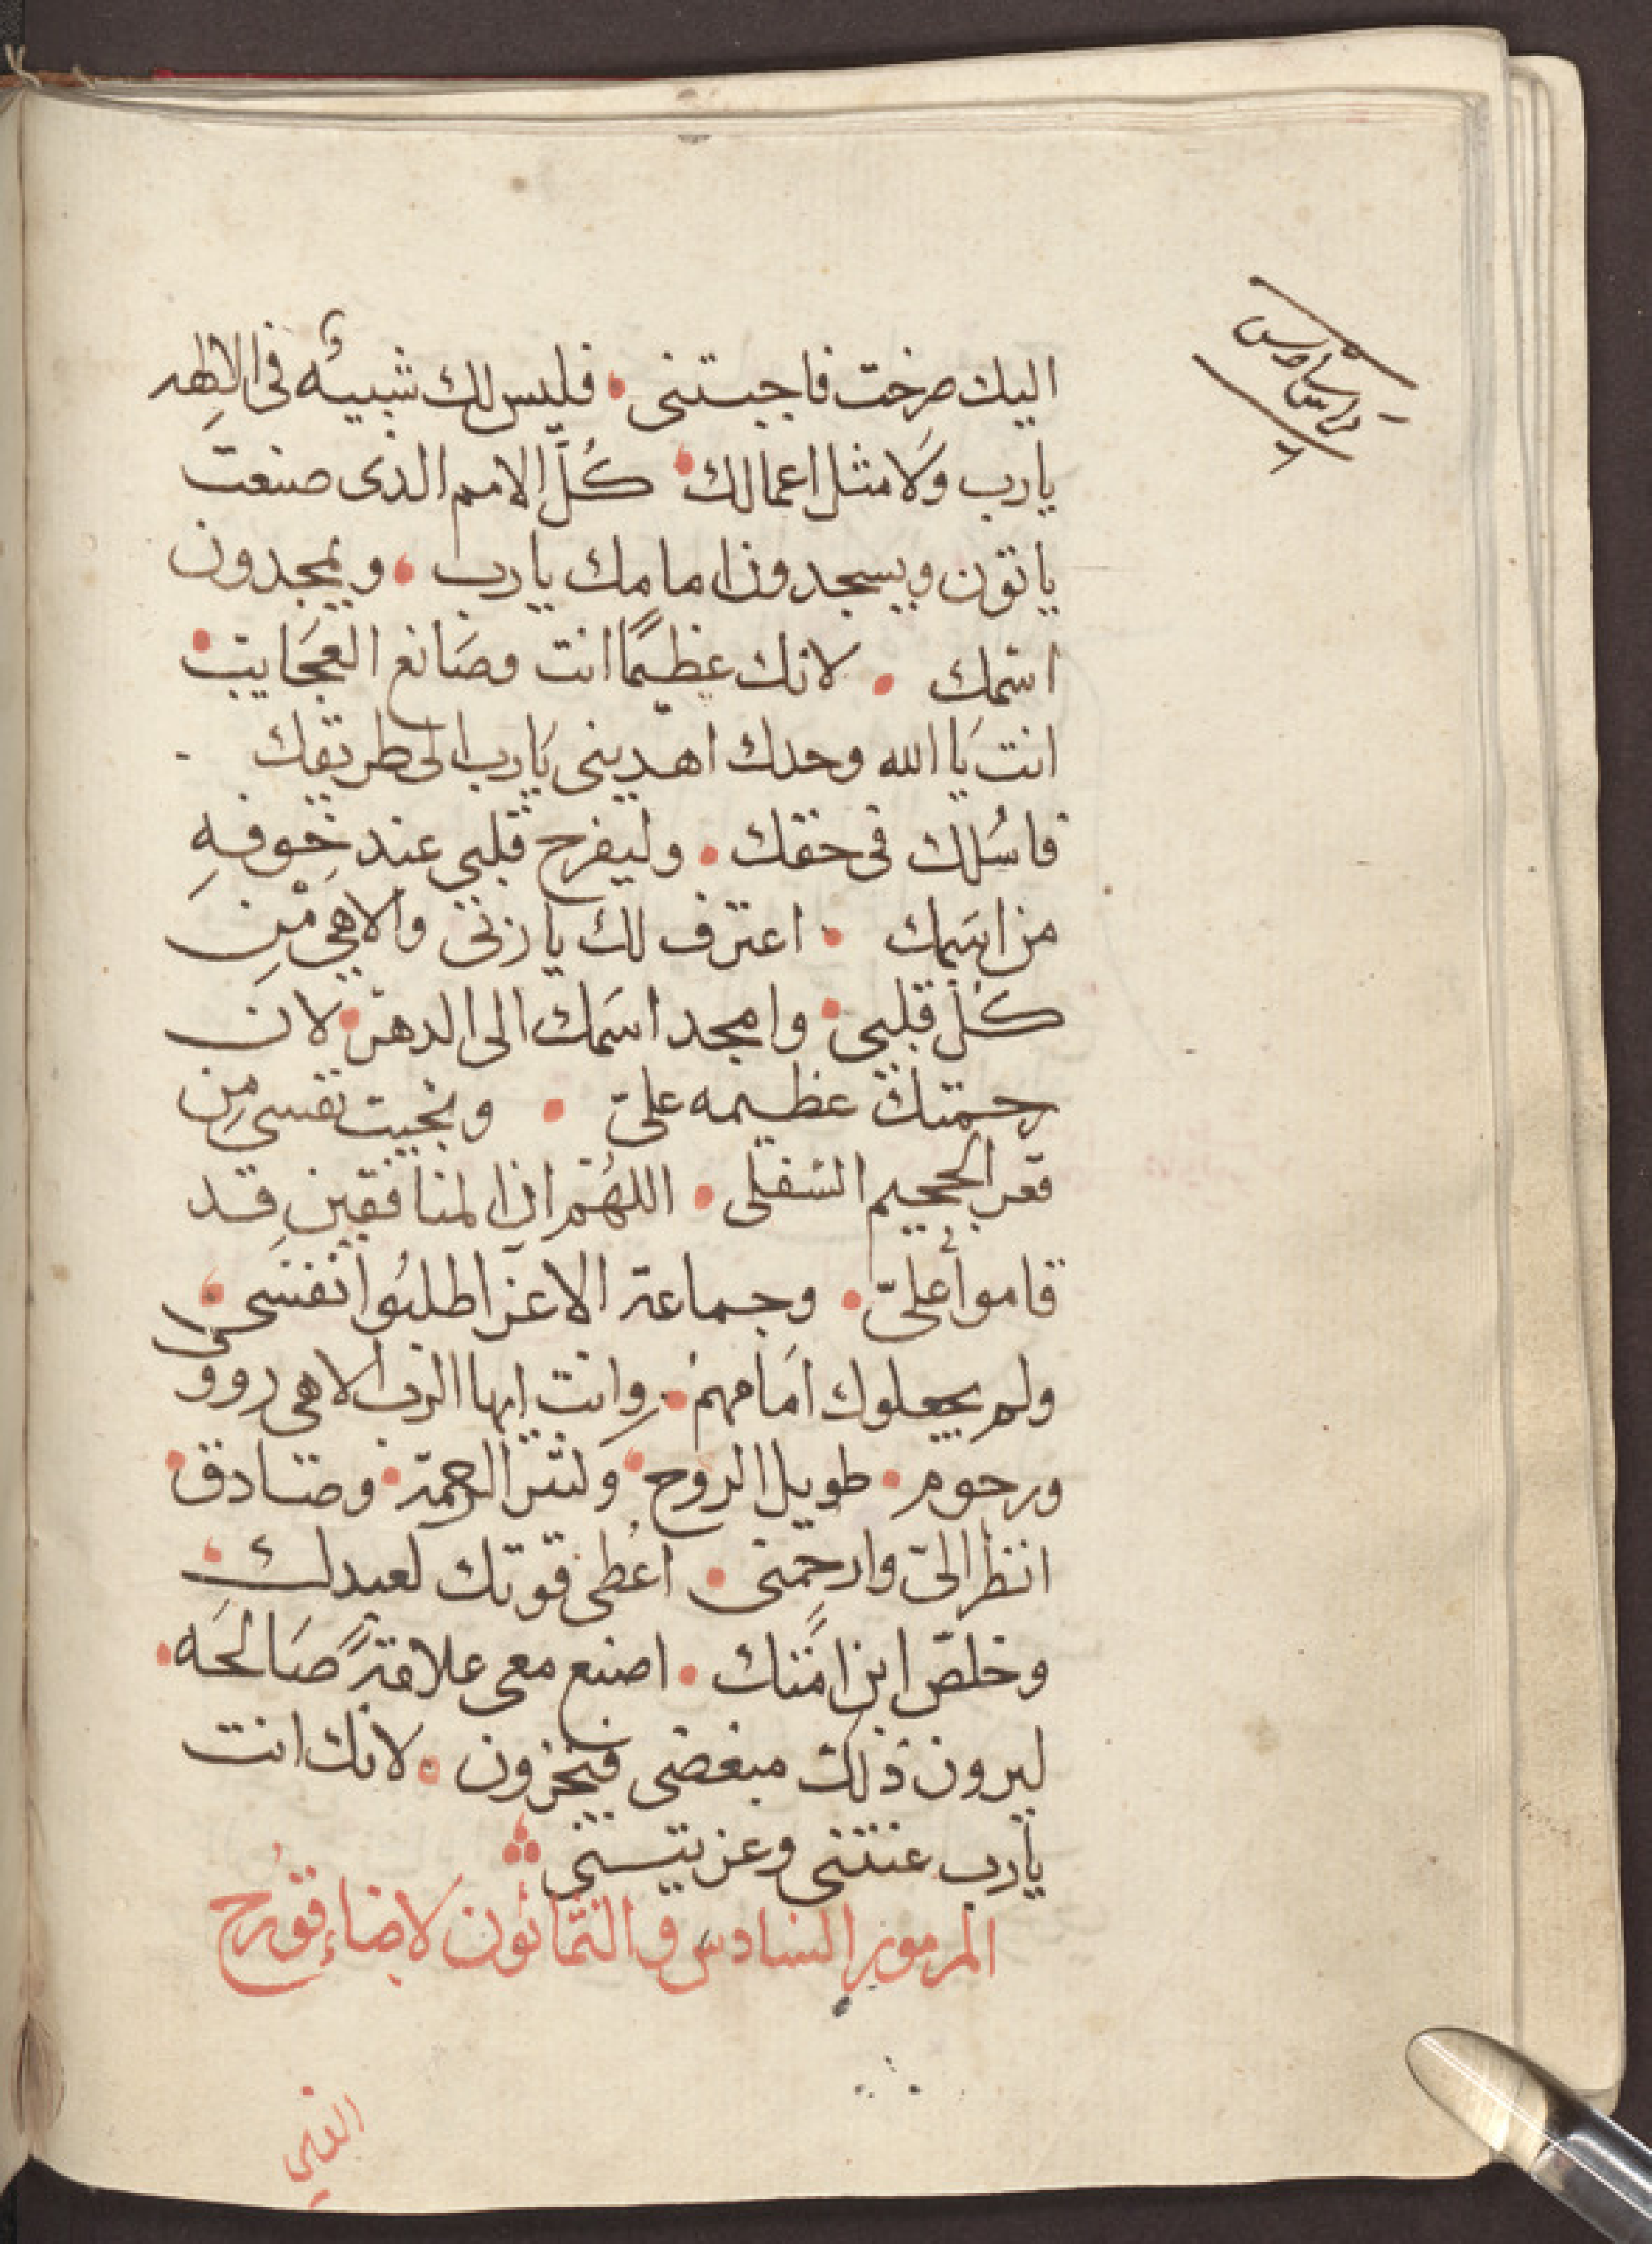 كراس سادس
٦
اليك صرخت فاجبتنى • فليس لك شبيئه فى الالهه
يارب ولا مثل اعمالك • كُلّ الامم الذى صنعت
ياتون ويسجدون امامك يارب • ويمجدون
اسمك • لانك عظيمًا انت وصَانع العجَايب •
انت يَا الله وحدك اهدينى يَارب الى طريقك
فاسُلك فى حقك • وليفرح قلبي عند خوفهِ
من اسَمك • اعترف لك يا ربى والاهي مْن
كلّ قلبي • وامجد اسَمك الى الدهر • لان
رحمتك عظيمه علىّ • ونجيت نفسى مِن
قعر الجحيم السفلى • اللهُم ان المنافقين قد
قاموا علىّ • وجماعة الاعزا طلبُوا نفسى •
ولم يجعلوك امَامهم • وانت ايها الرب الاهى روو
ورحوم • طويل الروح • وكتير الرحمة • وصَادق •
انظر الىّ وارحمنى • اعُطى قوتك لعبدك •
وخلصّ ابن امَتك • اصنع معى علامةً صَالحَه •
ليرون ذلك مبغضى فيخزون • لانك انت
يارب عنتنى وعزيتنى
المزمور السادس والتمانون لابناء قورح